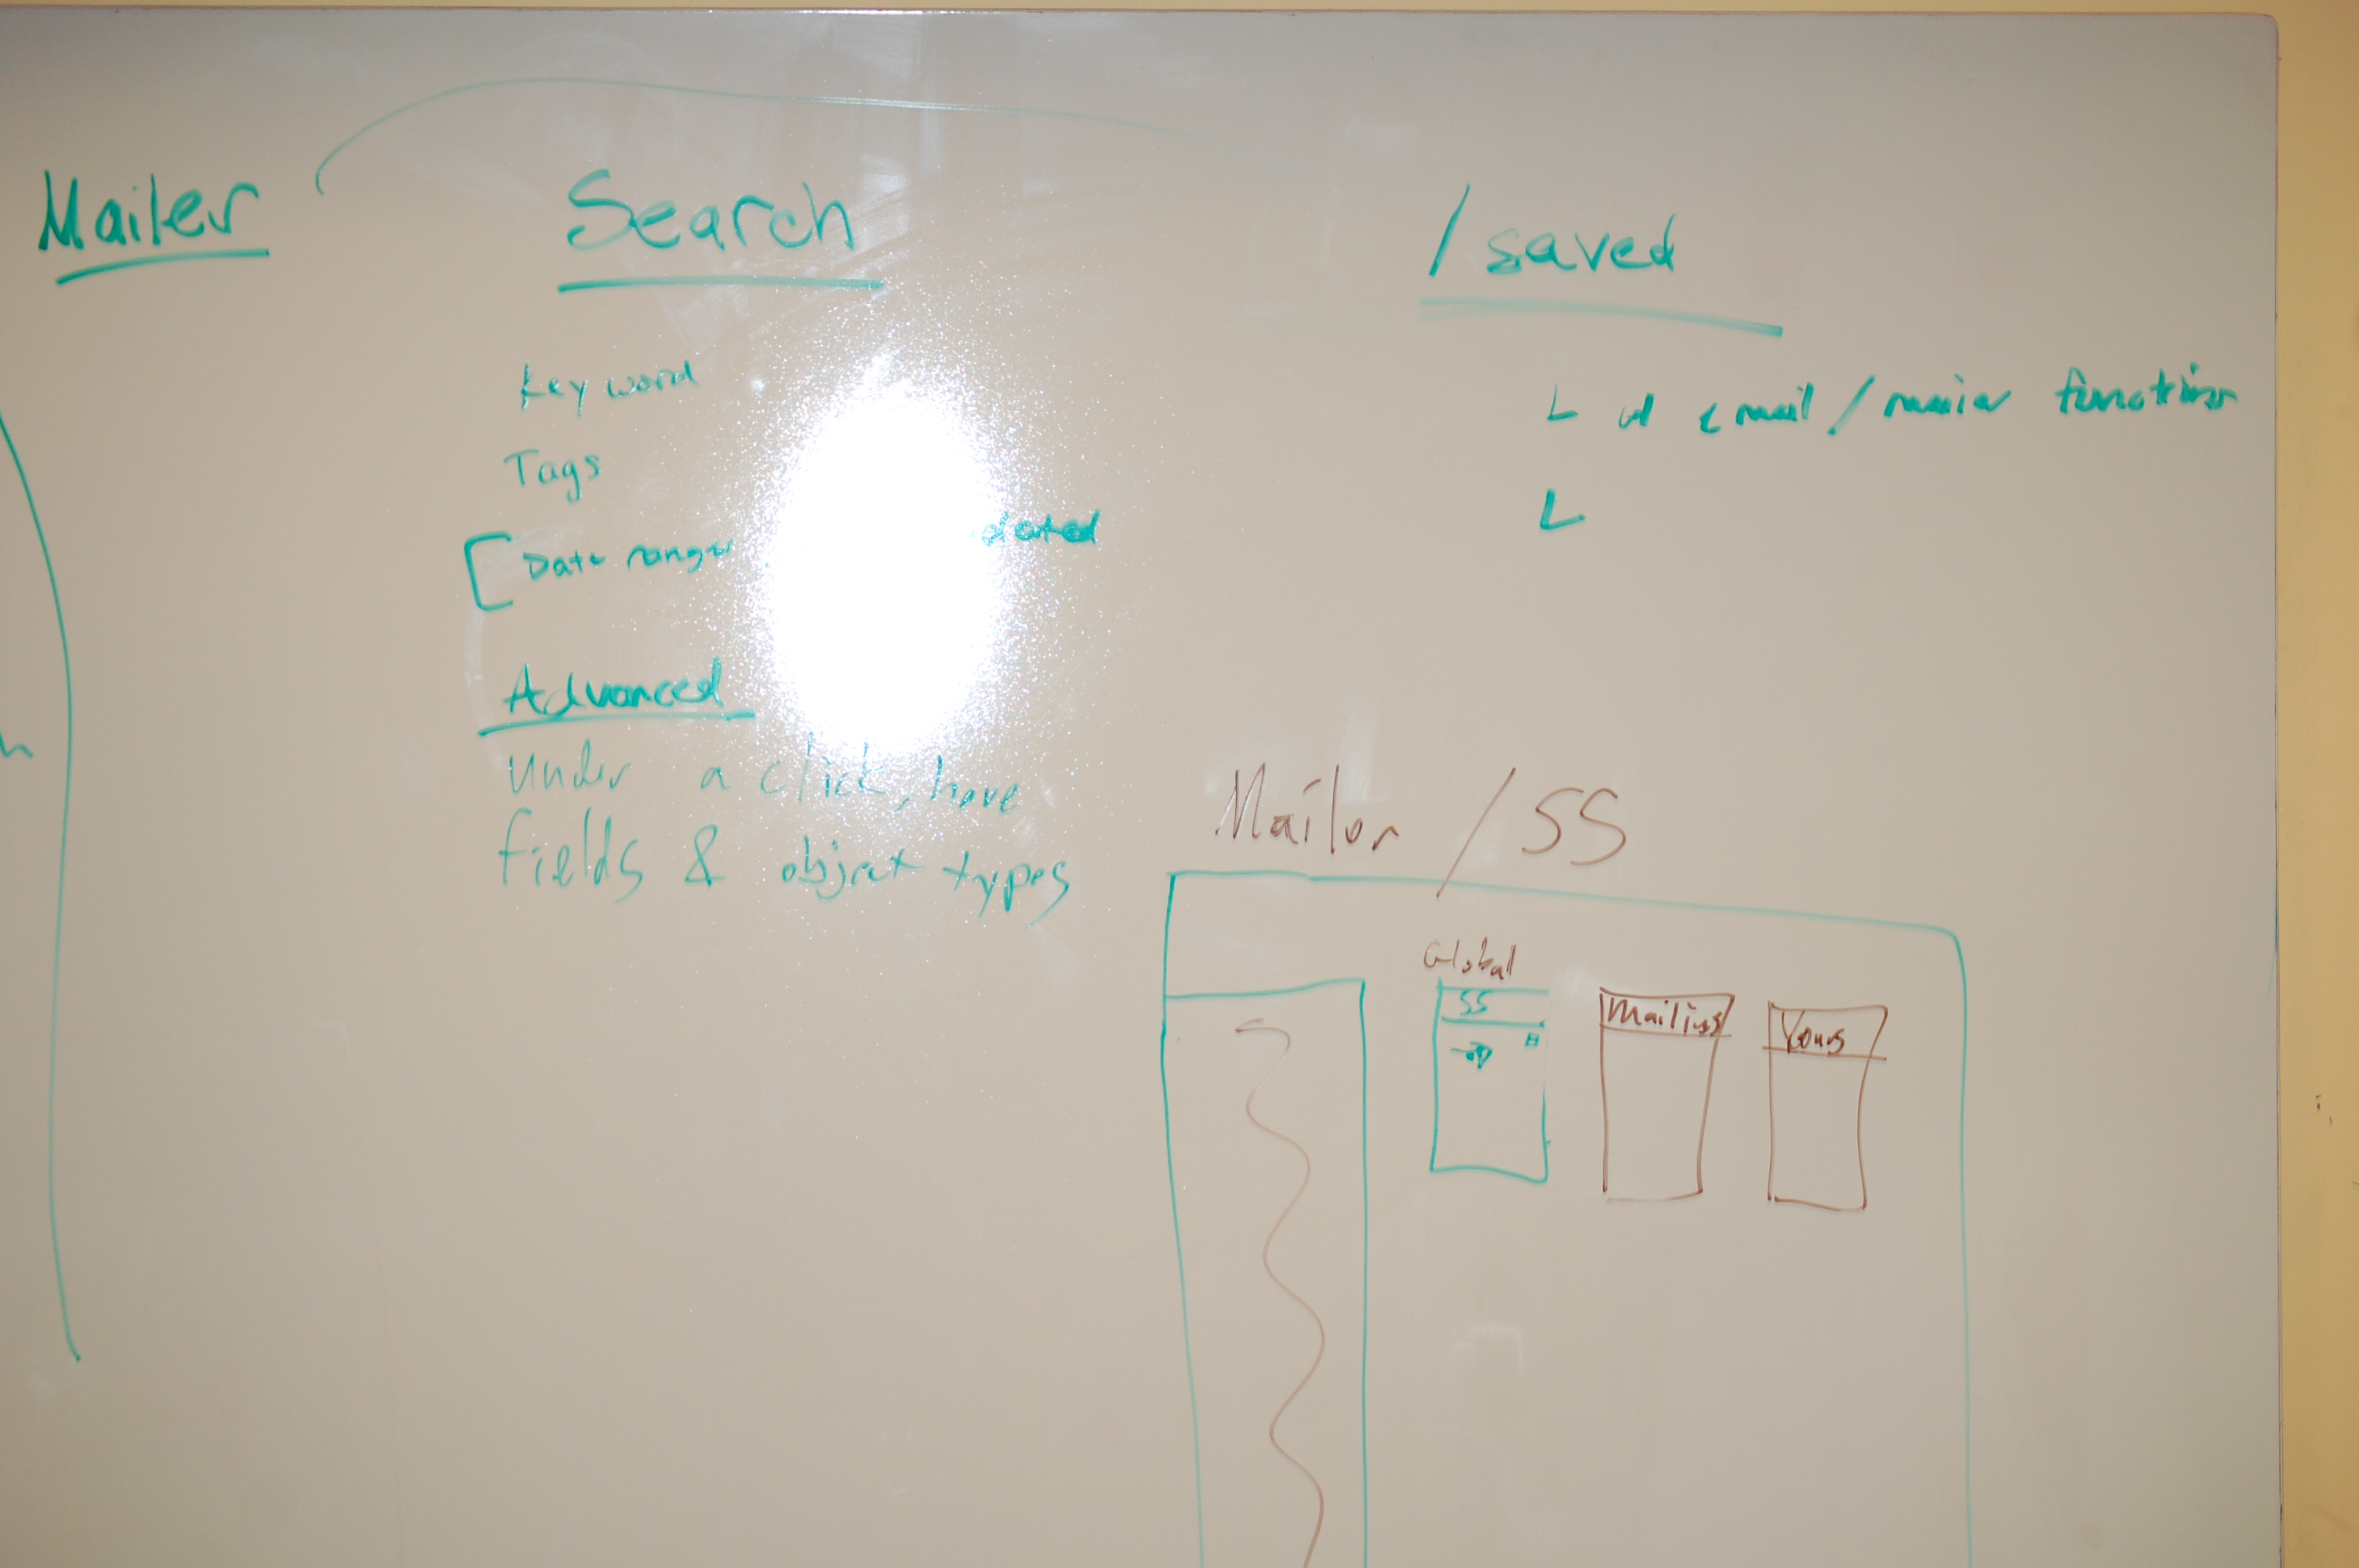 Mailer
Search
/ saved
Key word
Tags
Date range
dated
Advanced
Under a click, have
fields & object types
L w email / mailer function
L
Mailer / SS
Global
SS
Mailings
Yours